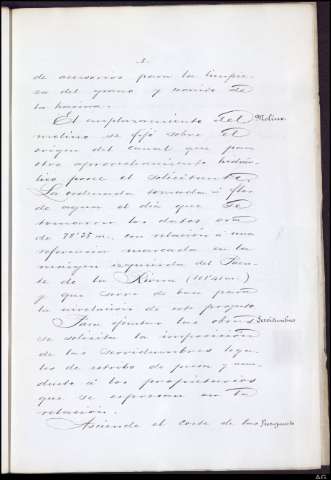 3.
de accesorios para la limpie-
sa del grano y cernido de
la harina.
El emplazamiento del Molino
molino se fijó sobre el
origen del canal que para
otro aprovechamiento hidráu-
lico posee el solicitante.
La ordenada tomada á flor
de agua el día que se
tomaron los datos era
de 98'35 m. con relación á una
referencia marcada en la
margen izquierda del Puen-
te de la
y que sirve de base para
la nivelación de este proyecto
Para ejecutar las obras Servidumbres
se solicita la imposición
de las servidumbres lega-
les de estribo de presa y acue-
ducto á los propietarios
que se expresan en la
relación.
Asciende el coste de las Presupuesto
A.G.